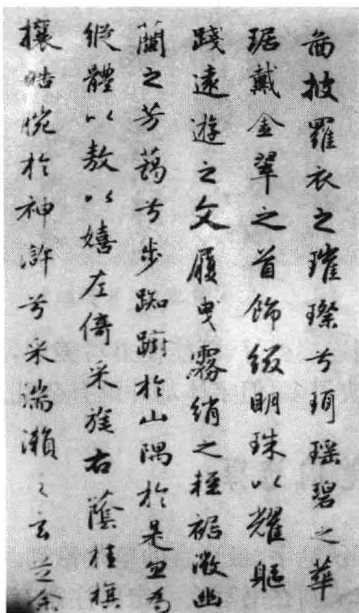 啚披羅衣之璀璨兮珥瑤碧之華
琚戴金翠之首飾綴明珠以耀軀
踐遠遊之文履曳霧綃之輕裾微幽
蘭之芳藹兮步踟躕於山隅於是忽焉
縱體以敖以嬉左倚采旄右蔭桂旗
攘皓腕於神滸兮采湍瀨之玄芝余